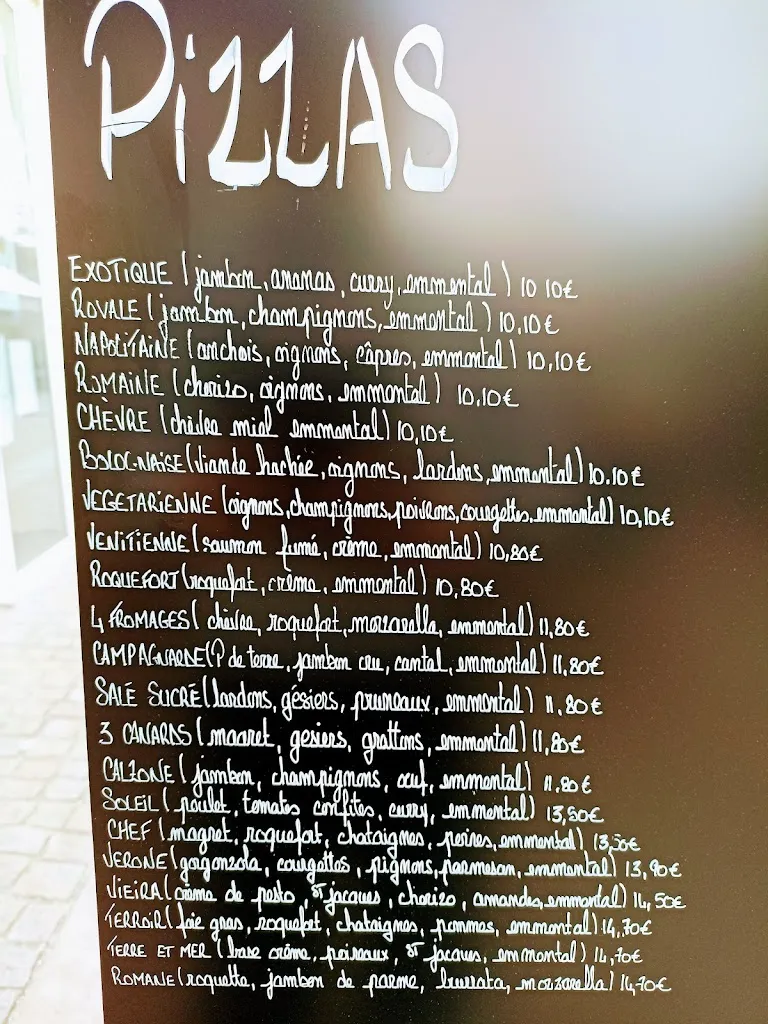 PiZZAS
EXOTIQUE (jambon, ananas, curry, emmental) 10.10€
ROYALE (jambon, champignons, emmental) 10,10€
NAPOLITAINE (anchois, oignons, câpres, emmental) 10,10€
ROMAINE (chorizo, oignons, emmental) 10,10€
CHÈVRE (chèvre miel emmental) 10,10€
BOLOGNAISE (viande hachée, oignons, lardons, emmental) 10.10€
VEGETARIENNE (oignons, champignons, poivrons, courgettes, emmental) 10,10€
VENITIENNE (saumon fumé, crème, emmental) 10,80€
ROQUEFORT (roquefort, crème, emmental) 10,80€
4 FROMAGES (chèvre, roquefort, mozzarella, emmental) 11,80€
CAMPAGNARDE (P de terre, jambon cru, cantal, emmental) 11,80€
SALÉ SUCRÉ (lardons, gésiers, pruneaux, emmental) 11,80€
3 CANARDS (magret, gesiers, grattons, emmental) 11,80€
CALZONE (jambon, champignons, oeuf, emmental) 11.80€
SOLEIL (poulet, tomates confites, curry, emmental) 13,50€
CHEF (magret, roquefort, chataignes, poires, emmental) 13,50€
VERONE (gorgonzola, courgettes, pignons, parmesan, emmental) 13,90€
VIEIRA (crème de pesto, St jacques, chorizo, amandes, emmental) 14,50€
TERROIR (foie gras, roquefort, chataignes, pommes, emmental) 14,70€
TERRE ET MER (base crème, poireaux, St jacques, emmental) 14,70€
ROMANE (roquette, jambon de parme, burrata, mozzarella) 14,70€